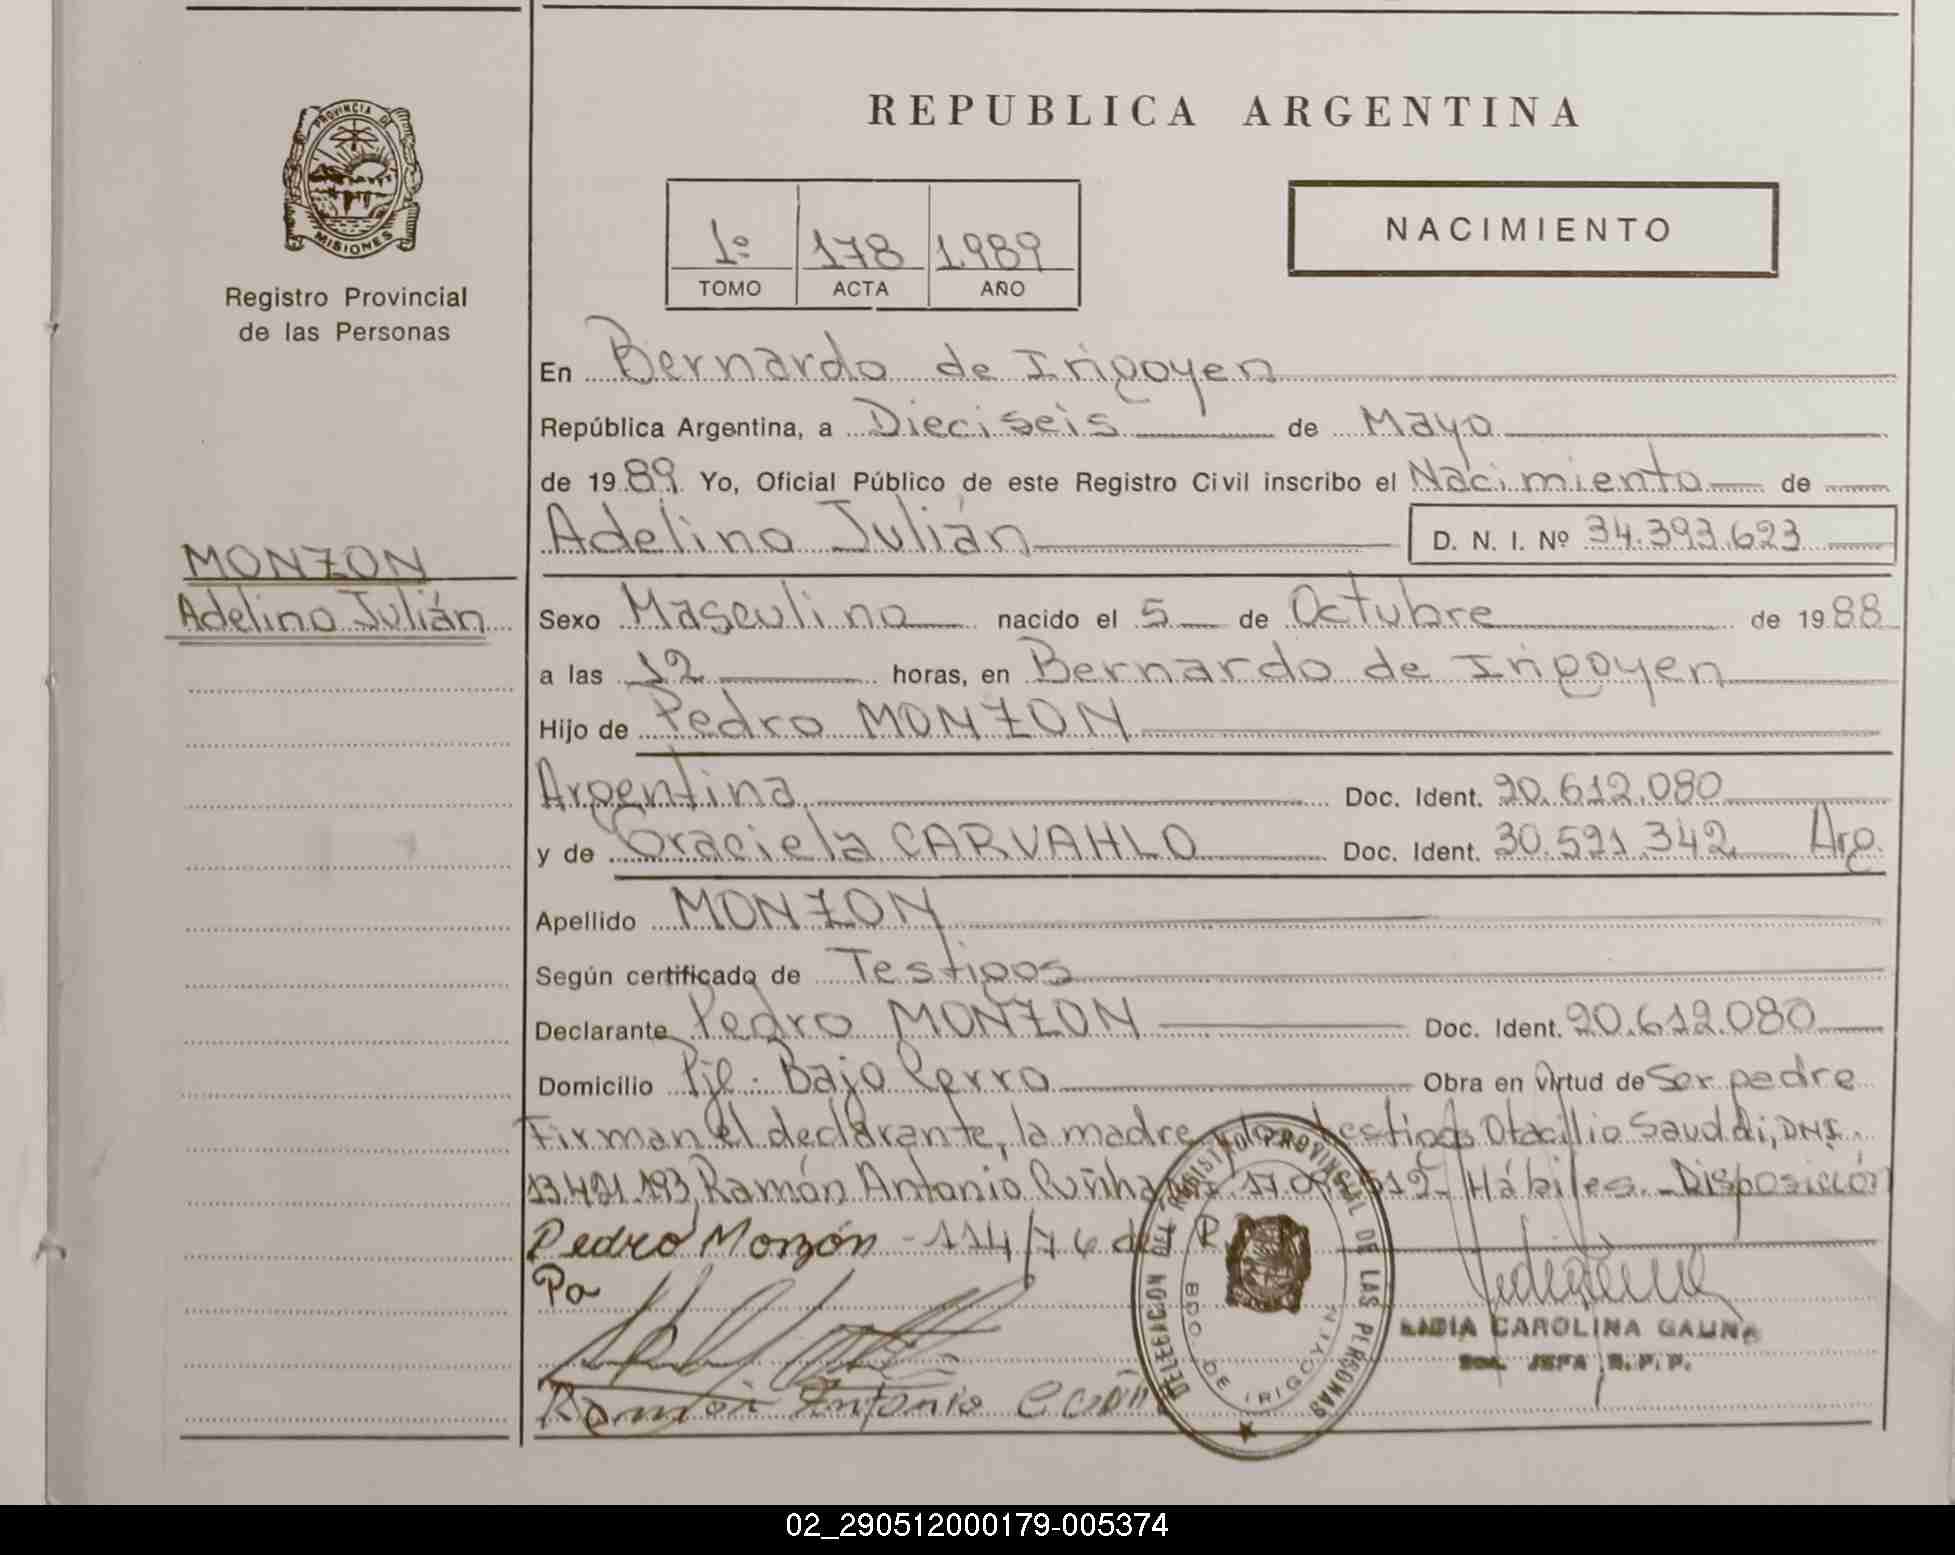 PROVINCIA DE
MISIONES
Registro Provincial
de las Personas
MONZON
Adelino Julián
REPUBLICA ARGENTINA
1º 178 1989
TOMO ACTA AÑO
NACIMIENTO
En Bernardo de Irigoyen
República Argentina, a Dieciseis de Mayo
de 1989 Yo, Oficial Público de este Registro Civil inscribo el Nacimiento de
Adelino Julián D. N. I. Nº 34.393.623
Sexo Masculino nacido el 5 de Octubre de 1988
a las 12 horas, en Bernardo de Irigoyen
Hijo de Pedro MONZON
Argentina Doc. Ident. 20.612.080
y de Graciela CARVAHLO Doc. Ident. 30.521.342 Arg.
Apellido MONZON
Según certificado de Testigos
Declarante Pedro MONZON Doc. Ident. 20.612.080
Domicilio Pje. Bajo Cerro Obra en virtud de Ser padre
Firman el declarante, la madre y los testigos Otacilio Sauddi, DNI.
13.421.193, Ramón Antonio Cuñha Hábiles. - Disposición
Pedro Monzón - 114/76 del R.
Po
Ramon Antonio
DELEGACION DEL REGISTRO PROVINCIAL DE LAS PERSONAS
BDO. DE IRIGOYEN
LIDIA CAROLINA GAUNA
JEFA R.P.P.
02_290512000179-005374